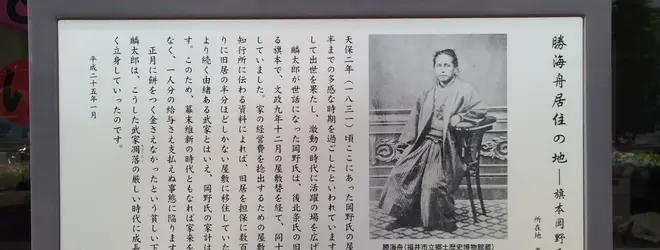 勝海舟居住の地―旗本岡野
所在地
天保二年(一八三一)頃ここにあった岡野氏の屋
半までの多感な時期を過ごしたといわれています
して出世を果たし、激動の時代に活躍の場を広げ
麟太郎が世話になった岡野氏は、後北条氏の旧
る旗本で、文政九年十二月の屋敷替を経て、同十
していました。家の経営費を捻出するための屋敷
知行所に伝わる資料によれば、旧居を担保に数百
りに旧居の半分ほどしかない屋敷に移住していた
より続く由緒ある武家とはいえ、岡野氏の家計は
す。このため、幕末維新の時代ともなれば家来を
なく、一人分の給与さえ支払えぬ事態に陥ります
正月に餅をつく金さえなかったという貧しい下
麟太郎は、こうした武家凋落の厳しい時代に成長
く立身していったのです。
平成二十五年一月
勝海舟(福井市立郷土歴史博物館蔵)